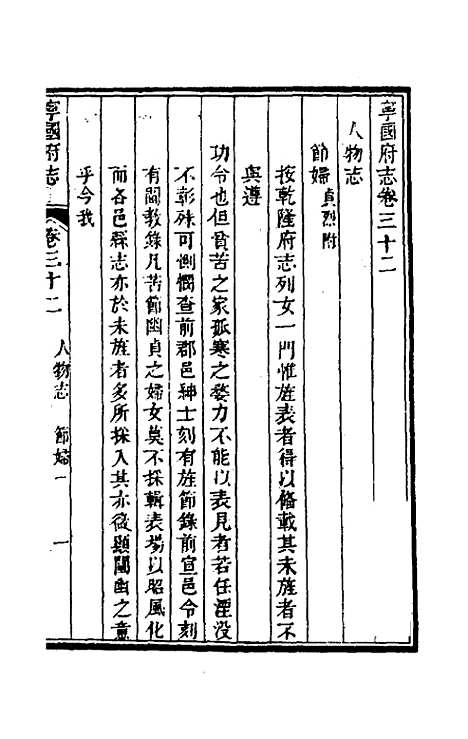 寧國府志卷三十二
人物志
節婦 貞烈附
按乾隆府志列女一門惟旌表者得以備載其未旌者不
與遵
功令也但貧苦之家孤寒之嫠力不能以表見者若任湮沒
不彰殊可惻憫查前郡邑紳士刻有旌節錄前宣邑令刻
有闡教錄凡苦節幽貞之婦女莫不採輯表揚以昭風化
而各邑縣志亦於未旌者多所採入其亦微顯闡幽之意
乎今我
寧國府志 卷三十二 人物志 節婦一 一